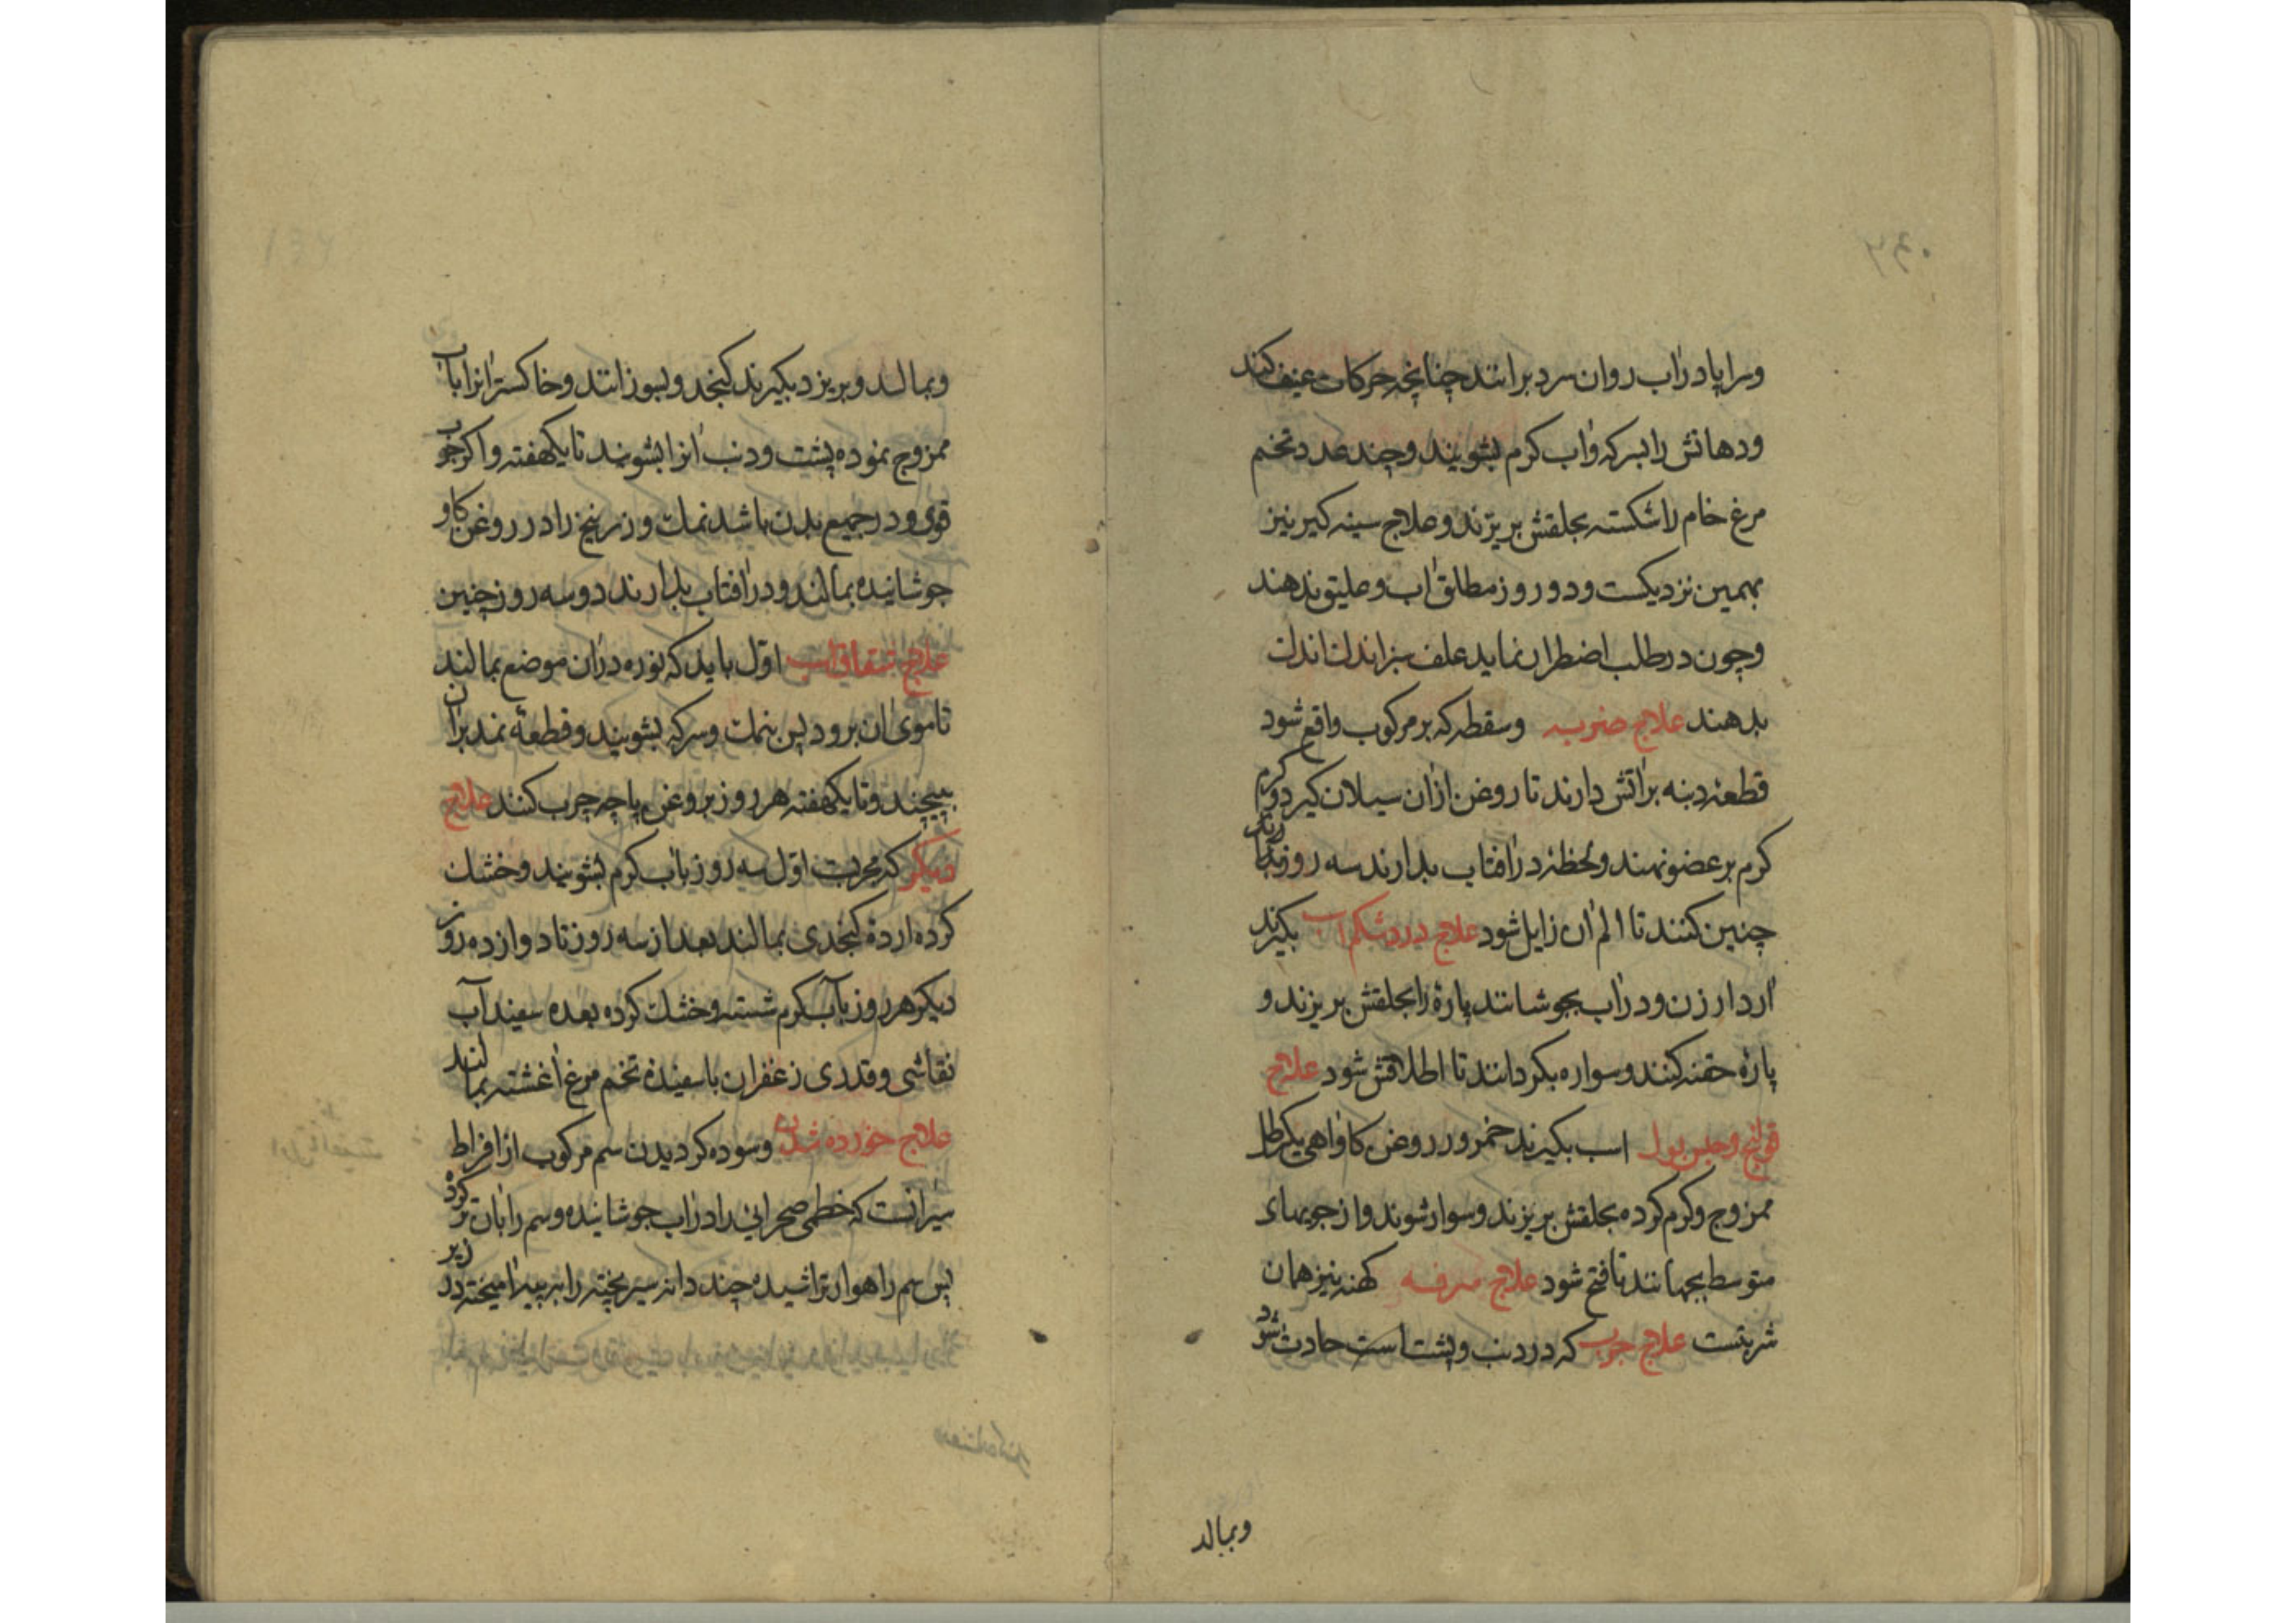 وسراپا در آب روان سرد برانند چنانچه حرکات عنیف کند
ودهانش را بسرکه وآب کرم بشویند وچند عدد تخم
مرغ خام را شکسته بحلقش بریزند وعلاج سینه کیر نیز
بهمین نزدیکست ودو روز مطلق آب وعلیق ندهند
وچون در طلب اضطراب نماید علف سبز اندک اندک
بدهند علاج ضربه وسقطه که بر مرکوب واقع شود
قطعه دنبه بر آتش دارند تا روغن ازان سیلان کیرد وکرم
کرم بر عضو نهند ولحظه در آفتاب بدارند سه روز
چنین کنند تا الم آن زایل شود علاج درد شکم اسب بکیرند
آرد ارزن ودر آب بجوشانند پاره را بحلقش بریزند و
پاره حقنه کنند وسواره بکردانند تا اطلاقش شود علاج
قولنج وحبس بول اسب بکیرند خمر وروغن کاو اهی یکرطل
ممزوج وکرم کرده بحلقش بریزند وسوار شوند واز جویهای
متوسط بجهانند تا فتح شود علاج سرفه کهنه نیز همان
شربتست علاج جرب که در دنب وپشت اسب حادث شود
وبمالد
وبمالند وبریزد بکیرند کنجد وبسوزانند وخاکستر آنرا بآب
ممزوج نموده پشت ودنب آنرا بشویند تا یکهفته واکر جرب
قوی ودر جمیع بدن باشد نمک وزرنیخ را در روغن کاو
جوشانیده بمالند ودر آفتاب بدارند دو سه روز چنین
علاج شقاق اسب اول باید که نوره دران موضع بمالند
تا موی آن برود پس بنمک وسرکه بشویند وقطعه نمد بران
بپیچند وتا یکهفته هر روز بروغن پاچه چرب کنند علاج
دیکر که مجربست اول سه روز بآب کرم بشویند وخشک
کرده ارده کنجدی بمالند بعد از سه روز تا دوازده روز
دیکر هر روز بآب کرم شسته وخشک کرده بعده سفیدآب
نقاشی وقدری زعفران با سفیده تخم مرغ آغشته بمالند
علاج خورده شدن وسوده کردیدن سم مرکوب از افراط
سیر آنست که خطمی صحرایی را در آب جوشانیده وسم را بان تر کرده
پس سم را هوار تراشیده چند دانه سیر پخته را بر پیه آمیخته در زیر